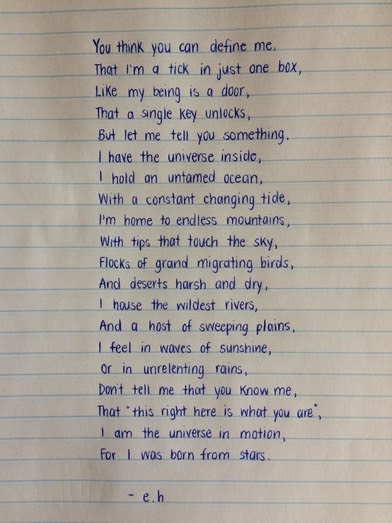 You think you can define me.
That I'm a tick in just one box,
Like my being is a door,
That a single key unlocks,
But let me tell you something.
I have the universe inside,
I hold an untamed ocean,
With a constant changing tide,
I'm home to endless mountains,
With tips that touch the sky,
Flocks of grand migrating birds,
And deserts harsh and dry,
I house the wildest rivers,
And a host of sweeping plains,
I feel in waves of sunshine,
Or in unrelenting rains,
Don't tell me that you know me,
That "this right here is what you are",
I am the universe in motion,
For I was born from stars.
- e.h